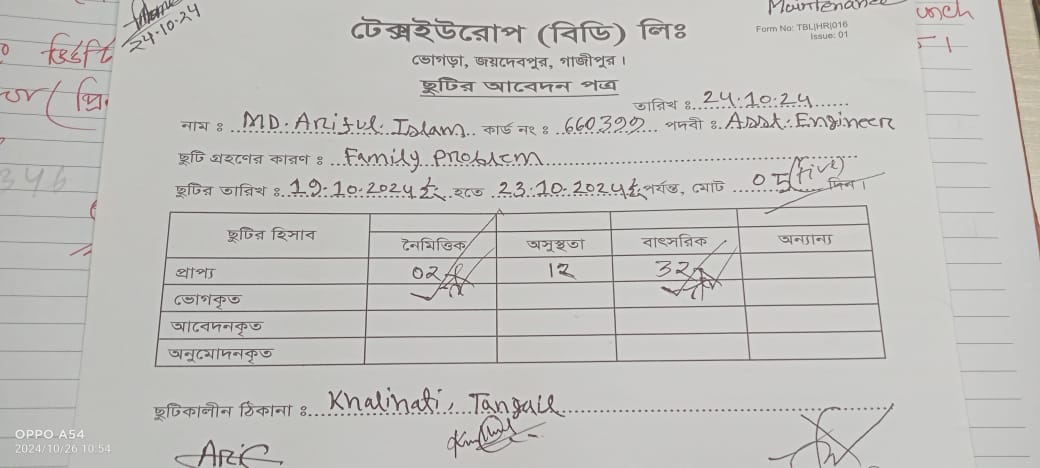 24.10.24
Maintenance
টেক্সইউরোপ (বিডি) লিঃ
Form No: TBL|HR|016
Issue: 01
ভোগড়া, জয়দেবপুর, গাজীপুর।
ছুটির আবেদন পত্র
তারিখ ঃ 24.10.24
নাম ঃ MD. Ariful Islam কার্ড নং ঃ 660399 পদবী ঃ Asst. Engineer
ছুটি গ্রহণের কারণ ঃ Family Problem
ছুটির তারিখ ঃ 19.10.2024 ইং হতে 23.10.2024 ইং পর্যন্ত, মোট 05 (five) দিন।
ছুটির হিসাব নৈমিত্তিক অসুস্থতা বাৎসরিক অন্যান্য
প্রাপ্য 02 12 32
ভোগকৃত
আবেদনকৃত
অনুমোদনকৃত
ছুটিকালীন ঠিকানা ঃ Khalihati, Tangail
OPPO A54
2024/10/26 10:54